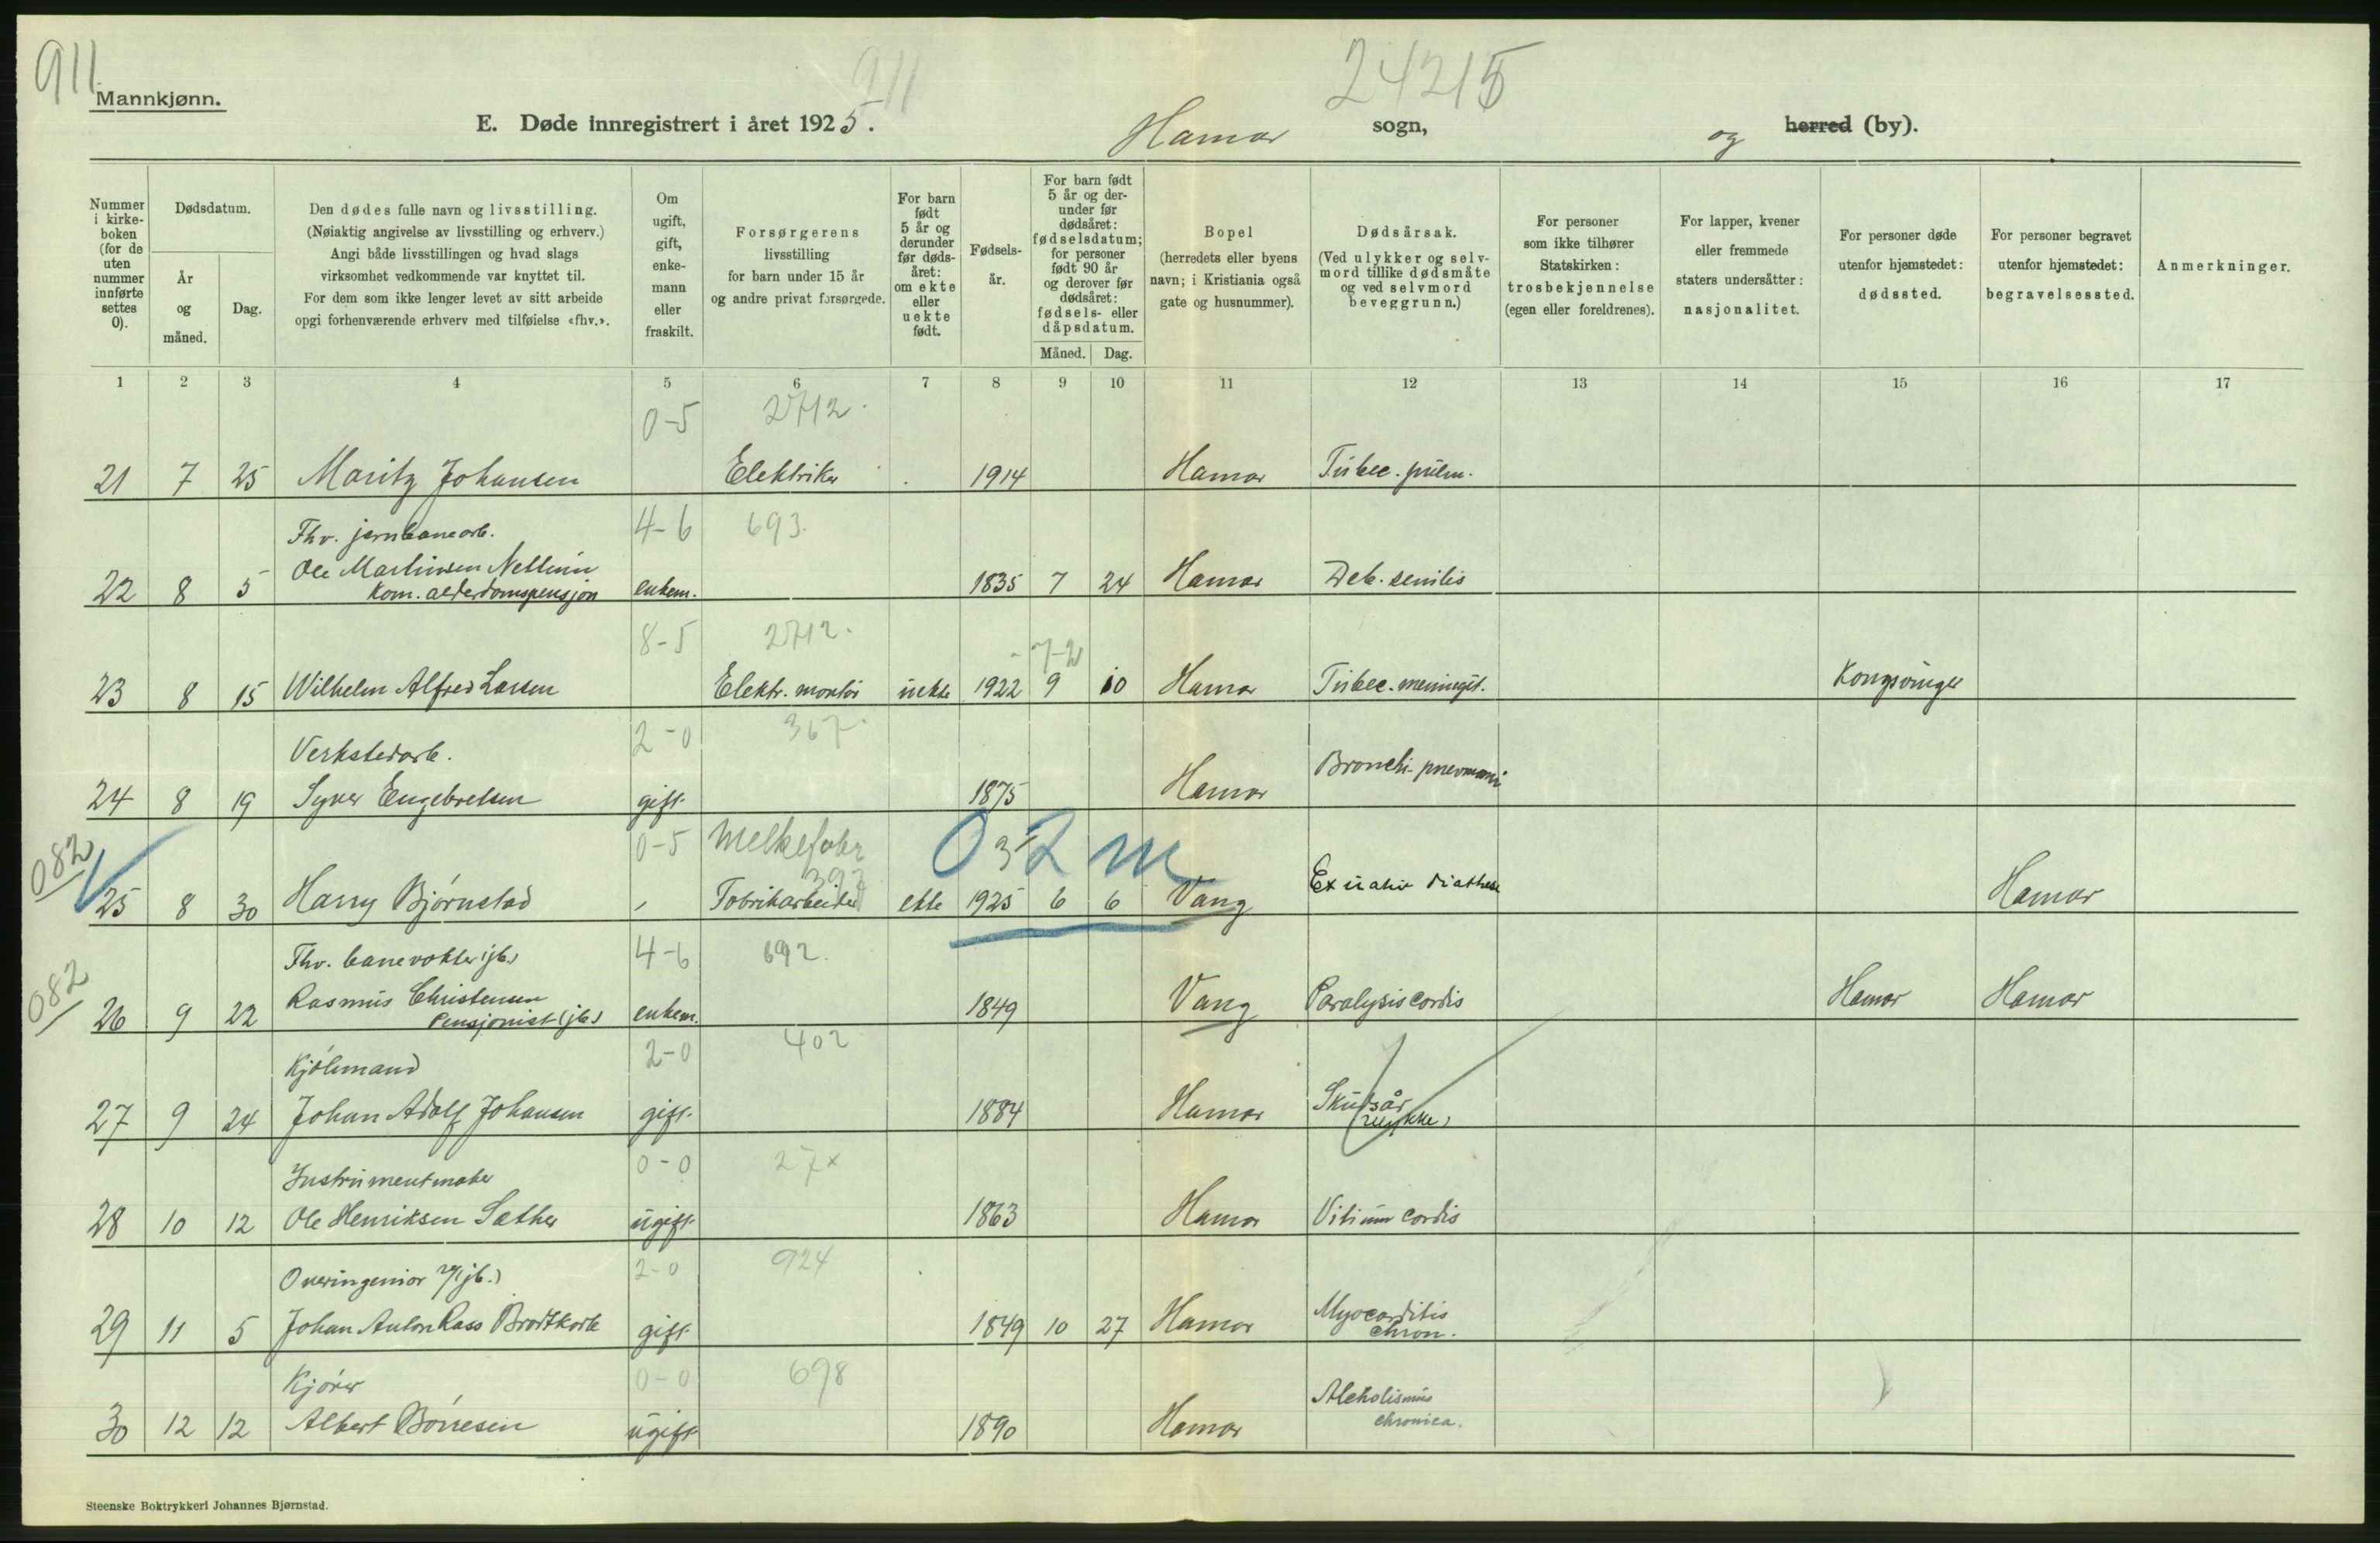 911
911
24215
Mannkjønn.
E. Døde innregistrert i året 1925. Hamar sogn, og herred (by).
Nummer i kirkeboken (for de uten nummer innførte settes 0).
Dødsdatum.
År og måned.
Dag.
Den dødes fulle navn og livsstilling.
(Nøiaktig angivelse av livsstilling og erhverv.)
Angi både livsstillingen og hvad slags
virksomhet vedkommende var knyttet til.
For dem som ikke lenger levet av sitt arbeide
opgi forhenværende erhverv med tilføielse «fhv.».
Om ugift, gift, enkemann eller fraskilt.
Forsørgerens
livsstilling
for barn under 15 år
og andre privat forsørgede.
For barn født 5 år og derunder før dødsåret: om ekte eller uekte født.
Fødselsår.
For barn født 5 år og derunder før dødsåret: fødselsdatum; for personer født 90 år og derover før dødsåret: fødsels- eller dåpsdatum.
Måned. Dag.
Bopel
(herredets eller byens
navn; i Kristiania også
gate og husnummer).
Dødsårsak.
(Ved ulykker og selvmord tillike dødsmåte og ved selvmord beveggrunn.)
For personer
som ikke tilhører
Statskirken:
trosbekjennelse
(egen eller foreldrenes).
For lapper, kvener
eller fremmede
staters undersåtter:
nasjonalitet.
For personer døde
utenfor hjemstedet:
dødssted.
For personer begravet
utenfor hjemstedet:
begravelsessted.
Anmerkninger.
1 2 3 4 5 6 7 8 9 10 11 12 13 14 15 16 17
0-5 2712.
21 7 25 Maritz Johansen Elektriker 1914 Hamar Tubec. pulm.
Fhv. jernbanearb. 4-6 693.
22 8 5 Ole Martinsen Nettum enkem. 1835 7 24 Hamar Deb. senilis
Kom. alderdomspensjon
8-5 2712. 7-2
23 8 15 Wilhelm Alfred Larsen Elektr. montør uekte 1922 9 10 Hamar Tubec. meningit. Kongsvinger
Verkstedarb. 2-0 367.
24 8 19 Syver Engebretsen gift. 1875 Hamar Bronchi-pneumoni
082 0-5 Melkefabr 392 032 m
25 8 30 Harry Bjørnstad Fabrikarbeider ekte 1925 6 6 Vang Exudativ diathese Hamar
082 Fhv. banevokter (jb.) 4-6 692.
26 9 22 Rasmus Christensen enkem. 1849 Vang Paralysis cordis Hamar Hamar
Pensjonist (jb.)
Kjølemand 2-0 402
27 9 24 Johan Adolf Johansen gift. 1884 Hamar Skudsår
(ulykke)
Instrumentmaker 0-0 27x
28 10 12 Ole Henriksen Sæther ugift. 1863 Hamar Vitium cordis
Overingeniør (jb.) 2-0 924
29 11 5 Johan Anton Rass Brodtkorb gift. 1849 10 27 Hamar Myocarditis
chron.
Kjører 0-0 698
30 12 12 Albert Børresen ugift. 1890 Hamar Alcholismus
chronica.
Steenske Boktrykkeri Johannes Bjørnstad.